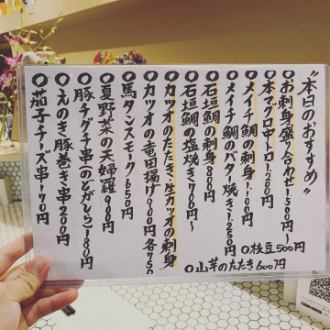 "本日のおすすめ"
○お刺身盛り合わせ1,500円〜
○本マグロ中トロ1,200円
○メイチ鯛の刺身1,100円
○メイチ鯛のバター焼き1,250円
○石垣鯛の刺身800円
○石垣鯛の塩焼き700円〜
○カツオのたたき・生カツオの刺身
○カツオの竜田揚げ900円各750
○馬タンスモーク650円
○夏野菜の天婦羅900円
○豚チグチ串(のどがしら)180円
○えのき豚巻き串200円
○茄子チーズ串170円
○枝豆500円
○山芋のたたき600円